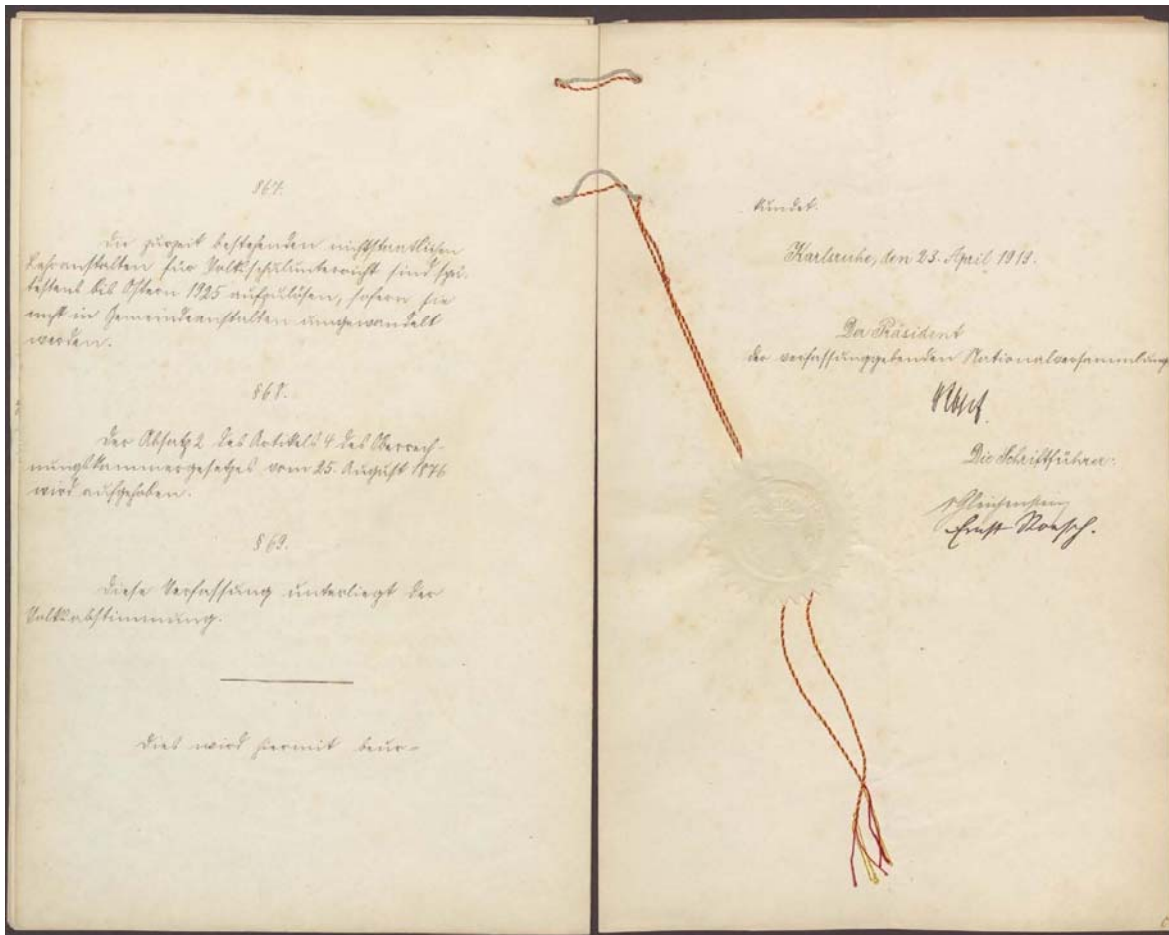 § 67.
Die zurzeit bestehenden nichtstaatlichen
Lehranstalten für Volksschulunterricht sind spä-
testens bis Ostern 1925 aufzulösen, sofern sie
nicht in Gemeindeanstalten umgewandelt
werden.
§ 68.
Der Absatz 2 des Artikels 4 des Oberrech-
nungskammergesetzes vom 25. August 1876
wird aufgehoben.
§ 69.
Diese Verfassung unterliegt der
Volksabstimmung.
Dies wird hiermit beur-
kundet.
Karlsruhe, den 23. April 1919.
Der Präsident
der verfassunggebenden Nationalversammlung
Die Schriftführer:
v Gleichenstein
Ernst